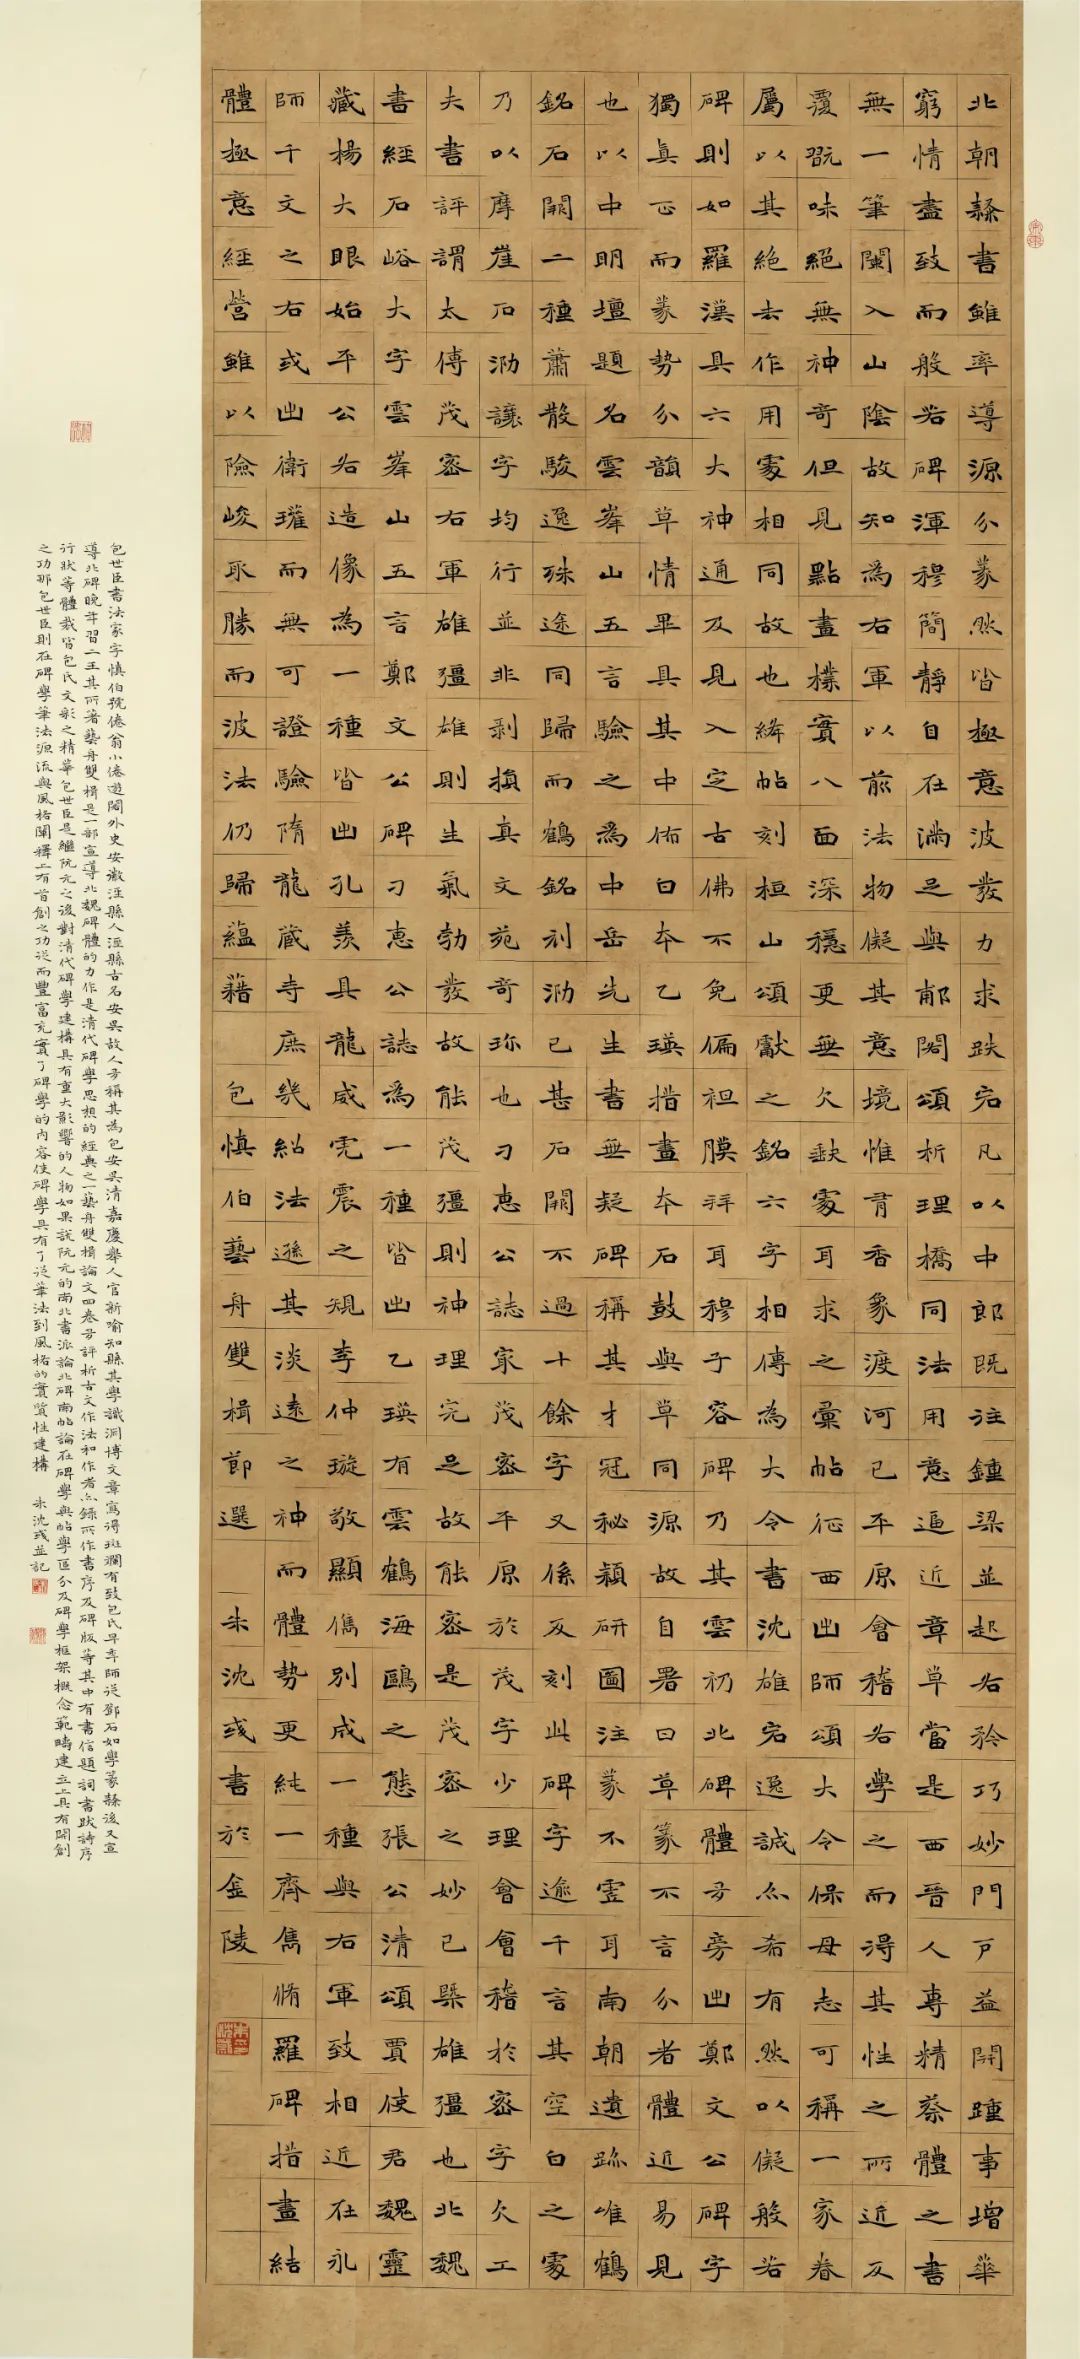 北朝隸書雖率導源分篆然皆極意波發力求跌宕凡以中郎既注鍾梁並起右矜巧妙門戶益開踵事增華
窮情盡致而般若碑渾穆簡靜自在滿足與郙閣頌析理橋同法用意逼近章草當是西晉人專精蔡體之書
無一筆闌入山陰故知為右軍以前法物儗其意境惟有香象渡河已平原會稽各學之而得其性之所近反
覆翫味絕無神奇但見點畫樸實八面深穩更無欠缺處耳求之彙帖征西出師頌大令保母志可稱一家眷
屬以其絕去作用處相同故也絳帖刻桓山頌獻之銘六字相傳為大令書沈雄宕逸誠亦希有然以儗般若
碑則如羅漢具六大神通及見入定古佛不免偏袒膜拜耳穆子容碑乃其雲初北碑體多旁出鄭文公碑字
獨真正而篆勢分韻草情畢具其中佈白本乙瑛措畫本石鼓與草同源故自署曰草篆不言分者體近易見
也以中明壇題名雲峯山五言驗之為中岳先生書無疑碑稱其才冠秘穎研圖注篆不虛耳南朝遺跡唯鶴
銘石闕二種蕭散駿逸殊途同歸而鶴銘刓泐已甚石闕不過十餘字又係反刻此碑字逾千言其空白之處
乃以摩崖石泐讓字均行並非剝損真文苑奇珍也刁惠公誌家茂密平原於茂字少理會會稽於密字欠工
夫書評謂太傅茂密右軍雄彊雄則生氣勃發故能茂彊則神理完足故能密是茂密之妙已槩雄彊也北魏
書經石峪大字雲峯山五言鄭文公碑刁惠公誌為一種皆出乙瑛有雲鶴海鷗之態張公清頌賈使君魏靈
藏楊大眼始平公各造像為一種皆出孔羨具龍威虎震之規李仲璇敬顯儁別成一種與右軍致相近在永
師千文之右或出衛瓘而無可證驗隋龍藏寺庶幾紹法遜其淡遠之神而體勢更純一齊雋脩羅碑措畫結
體極意經營雖以險峻取勝而波法仍歸蘊藉 包慎伯藝舟雙楫節選 朱沈彧書於金陵
包世臣書法家字慎伯號倦翁小倦遊閣外史安徽涇縣人涇縣古名安吳故人多稱其為包安吳清嘉慶舉人官新喻知縣其學識洞博文章寫得斑斕有致包氏早年師從鄧石如學篆隸後又宣
導北碑晚年習二王其所著藝舟雙楫是一部宣導北魏碑體的力作是清代碑學思想的經典之一藝舟雙楫論文四卷多評析古文作法和作者亦錄所作書序及碑版等其中有書信題詞書跋詩序
行狀等體裁皆包氏文彩之精華包世臣是繼阮元之後對清代碑學建構具有重大影響的人物如果說阮元的南北書派論北碑南帖論在碑學與帖學區分及碑學框架概念範疇建立上具有開創
之功那包世臣則在碑學筆法源流與風格闡釋上有首創之功從而豐富充實了碑學的內容使碑學具有了從筆法到風格的實質性建構 朱沈彧並記